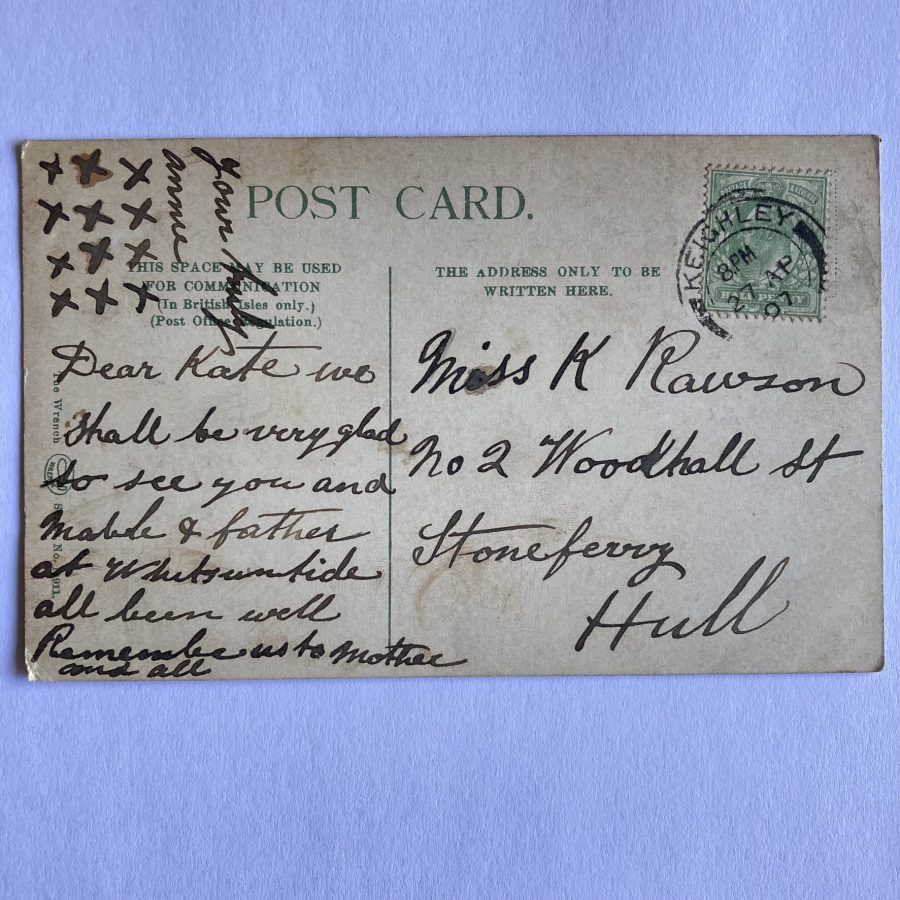 POST CARD.
THIS SPACE MAY BE USED
FOR COMMUNICATION
(In British Isles only.)
(Post Office Regulation.)
THE ADDRESS ONLY TO BE
WRITTEN HERE.
KEIGHLEY
8 PM
27 AP
07
x x x
x x x
x x x
x x x
Dear Kate we
shall be very glad
to see you and
Mable & father
at Whitsuntide
all been well
Remember us to Mother
and all
Your truly
annie
Miss K Rawson
No 2 Woodhall St
Stoneferry
Hull
The Wrench
No.
911.